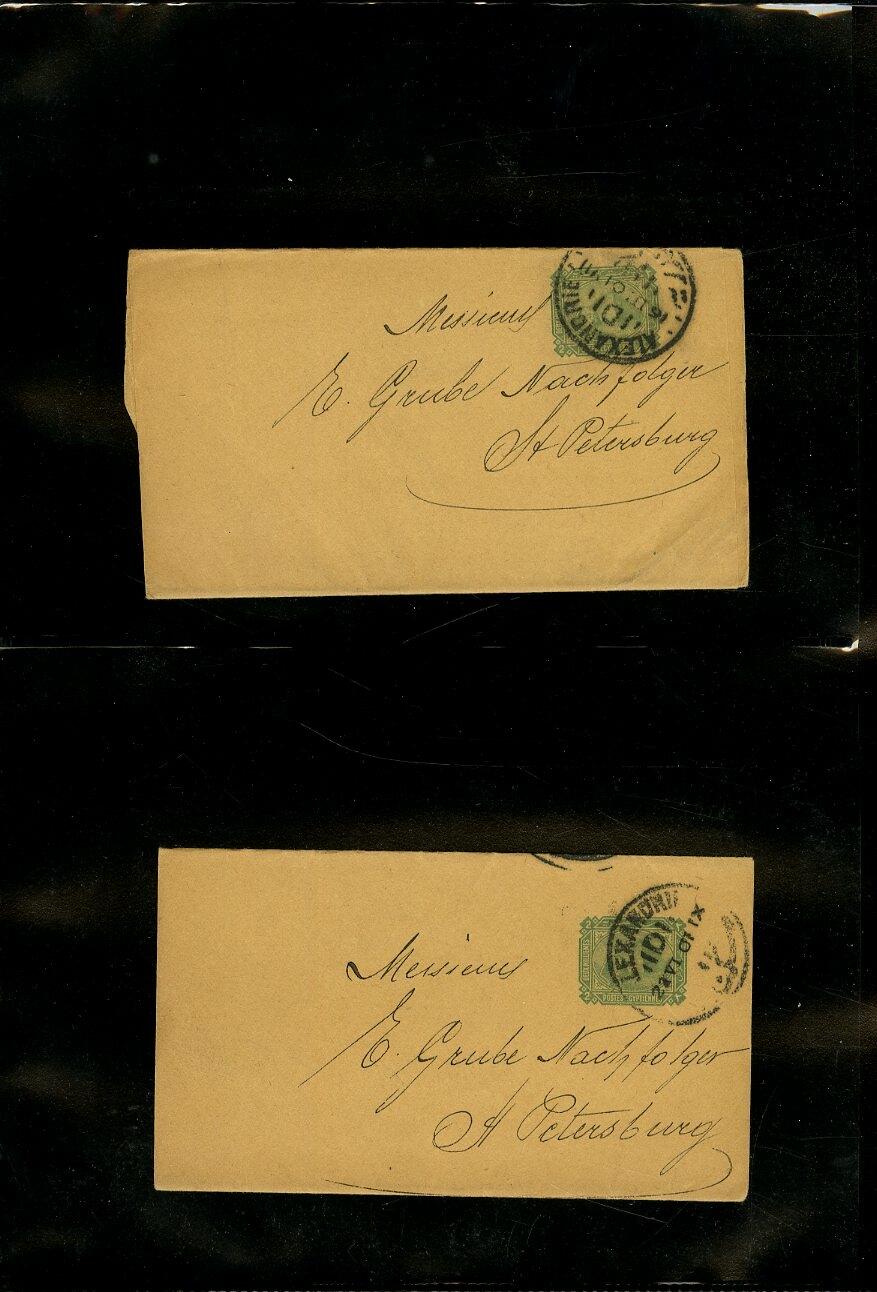 ALEXANDRIE
Messieurs
E. Grube Nachfolger
St Petersburg
LEXANDRI
POSTES EGYPTIENNE
Messieurs
E. Grube Nachfolger
St Petersburg